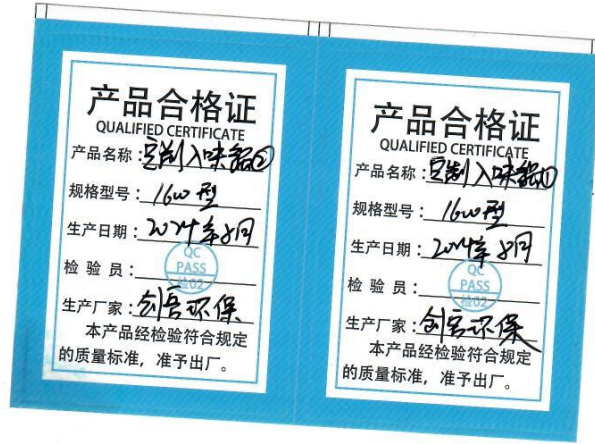 产品合格证
QUALIFIED CERTIFICATE
产品名称：定制入味锅②
规格型号：1600型
生产日期：2024年8月
检 验 员：
QC
PASS
检02
生产厂家：创客环保
本产品经检验符合规定
的质量标准，准予出厂。
产品合格证
QUALIFIED CERTIFICATE
产品名称：定制入味锅①
规格型号：1600型
生产日期：2024年8月
检 验 员：
QC
PASS
检02
生产厂家：创客环保
本产品经检验符合规定
的质量标准，准予出厂。